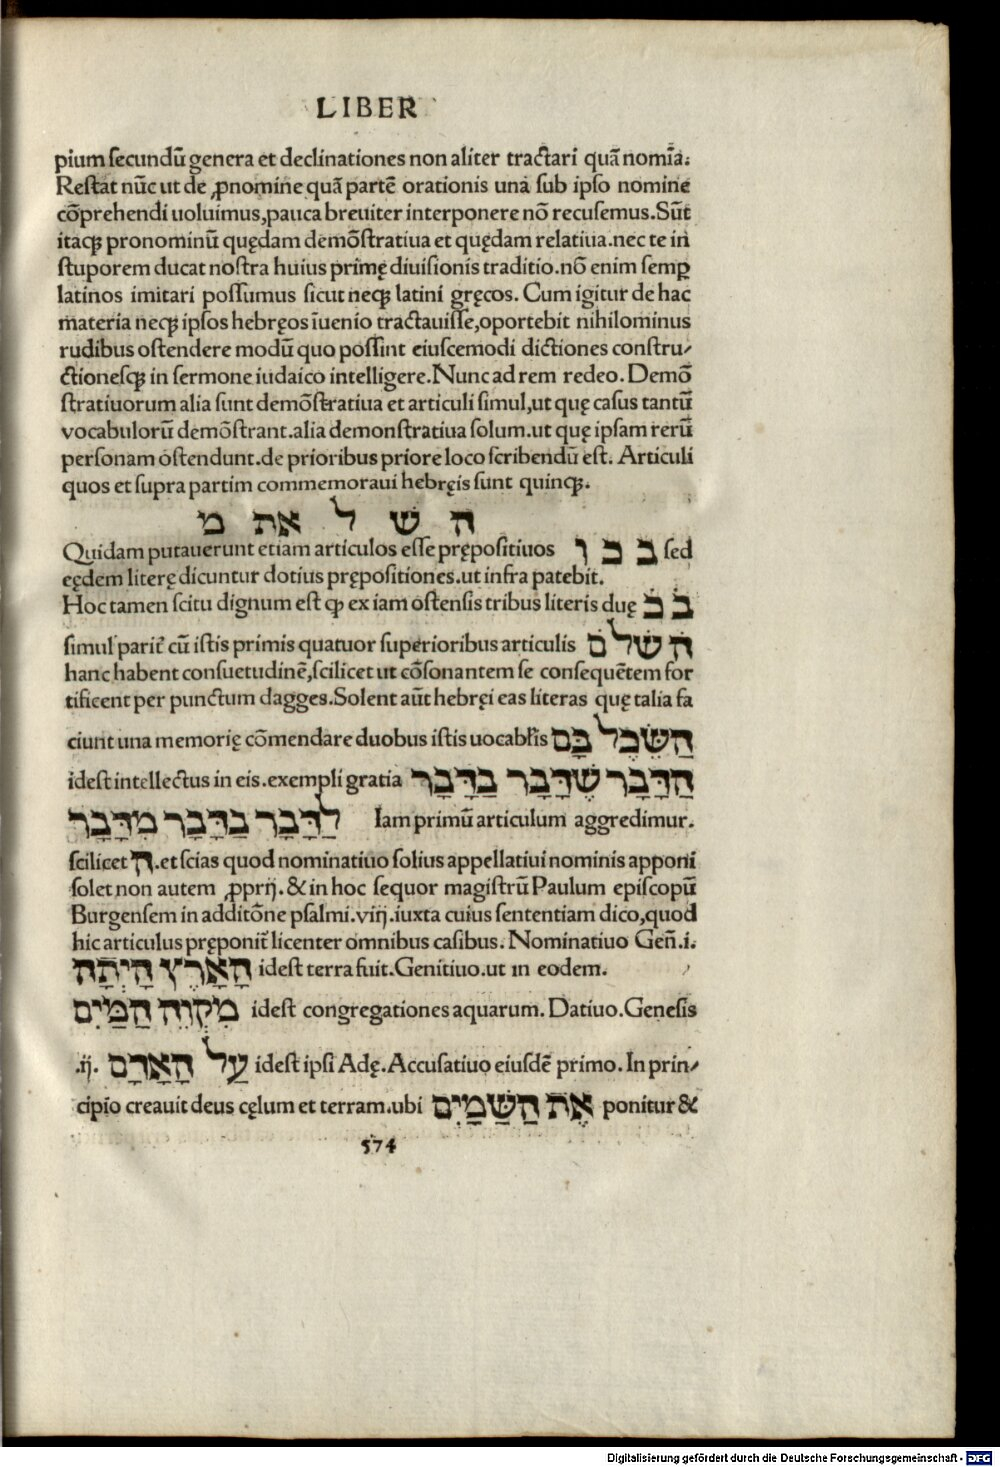 LIBER
pium secundũ genera et declinationes non aliter tractari quã nomĩa:
Restat nũc ut de ꝓnomine quã partẽ orationis una sub ipso nomine
cõprehendi uoluimus,pauca breuiter interponere nõ recusemus.Sũt
itaqꝫ pronominũ quędam demõstratiua et quędam relatiua.nec te in
stuporem ducat nostra huius primę diuisionis traditio.nõ enim semꝑ
latinos imitari possumus sicut neqꝫ latini gręcos. Cum igitur de hac
materia neqꝫ ipsos hebręos ĩuenio tractauisse,oportebit nihilominus
rudibus ostendere modũ quo possint eiuscemodi dictiones constru/
ctionesqꝫ in sermone iudaico intelligere.Nunc ad rem redeo.Demõ
stratiuorum alia sunt demõstratiua et articuli simul,ut quę casus tantũ
vocabulorũ demõstrant.alia demonstratiua solum.ut quę ipsam rerũ
personam ostendunt.de prioribus priore loco scribendũ est. Articuli
quos et supra partim commemoraui hebręis sunt quinqꝫ.
ה ש ל את מ
Quidam putauerunt etiam articulos esse prępositiuos ב כ ו sed
eędem literę dicuntur dotius prępositiones.ut infra patebit.
Hoc tamen scitu dignum est ꝙ ex iam ostensis tribus literis duę ב כ
simul parit̃ cũ istis primis quatuor superioribus articulis ה ש ל מ
hanc habent consuetudinẽ,scilicet ut cõsonantem se consequẽtem for
tificent per punctum dagges.Solent aũt hebręi eas literas quę talia fa
ciunt una memorię cõmendare duobus istis uocabl̃is הַשֵּׂכֶל בָּם
idest intellectus in eis.exempli gratia הַדָּבָר שֶׁדָּבָר בַדָּבָר
לַדָּבָר כַדָּבָר מִדָּבָר Iam primũ articulum aggredimur.
scilicet ה.et scias quod nominatiuo solius appellatiui nominis apponi
solet non autem ꝓprij. & in hoc sequor magistrũ Paulum episcopũ
Burgensem in additõne psalmi.vij.iuxta cuius sententiam dico,quod
hic articulus pręponit̃ licenter omnibus casibus. Nominatiuo Geñ.i.
הָאָרֶץ הָיְתָה idest terra fuit.Genitiuo.ut in eodem.
מִקְוֵה הַמַּיִם idest congregationes aquarum. Datiuo.Genesis
.ij. עַל הָאָדָם idest ipsi Adę.Accusatiuo eiusdẽ primo. In prin/
cipio creauit deus cęlum et terram.ubi אֶת הַשָּׁמַיִם ponitur &
574
Digitalisierung gefördert durch die Deutsche Forschungsgemeinschaft - DFG